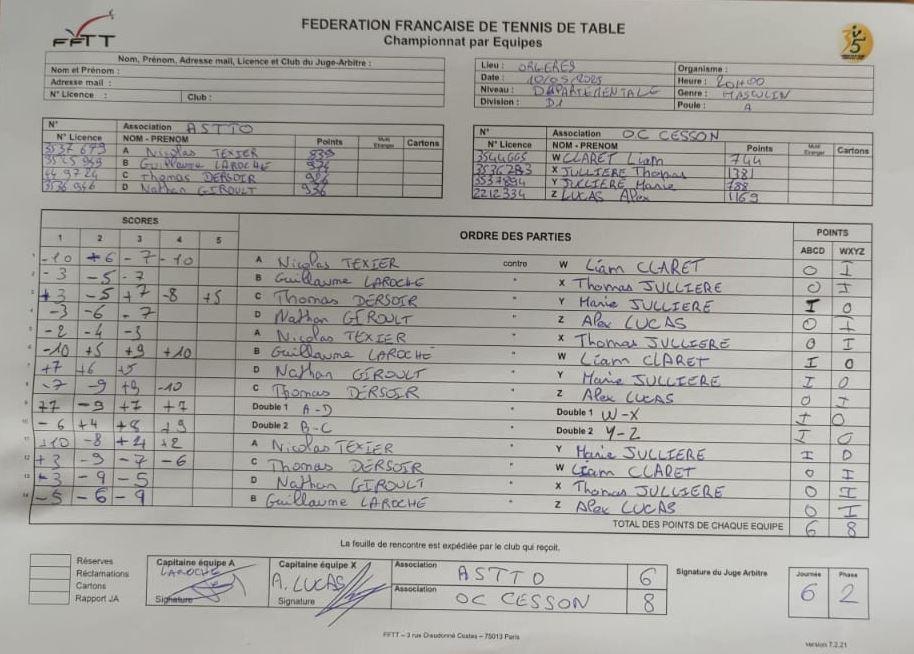 FFTT
FEDERATION FRANCAISE DE TENNIS DE TABLE
Championnat par Equipes
Nom, Prénom, Adresse mail, Licence et Club du Juge-Arbitre :
Nom et Prénom :
Adresse mail :
N° Licence : Club :
Lieu : ORGERES Organisme :
Date : 10/05/2025 Heure : 20H00
Niveau : DÉPARTEMENTALE Genre : MASCULIN
Division : D1 Poule : A
N° Association ASTTO
N° Licence NOM - PRENOM Points Cartons
A Nicolas TEXIER
B Guillaume LAROCHE
C Thomas DERSOIR
D Nathan GIROULT
N° Association OC CESSON
N° Licence NOM - PRENOM Points Cartons
3544665 W CLARET Liam 744
3536283 X JULLIERE Thomas 1381
3537894 Y JULLIERE Marie 788
2212334 Z LUCAS Alex 1169
SCORES ORDRE DES PARTIES POINTS
1 2 3 4 5 ABCD WXYZ
-10 +6 -7 -10 A Nicolas TEXIER contre W Liam CLARET O I
-3 -5 -7 B Guillaume LAROCHE " X Thomas JULLIERE O I
+3 -5 +7 -8 +5 C Thomas DERSOIR " Y Marie JULLIERE I O
-3 -6 -7 D Nathan GIROULT " Z Alex LUCAS O I
-2 -4 -3 A Nicolas TEXIER " X Thomas JULLIERE O I
-10 +5 +9 +10 B Guillaume LAROCHE " W Liam CLARET I O
+7 +6 +5 D Nathan GIROULT " Y Marie JULLIERE I O
-7 -9 +9 -10 C Thomas DERSOIR " Z Alex LUCAS O I
+7 -9 +7 +7 Double 1 A-D " Double 1 W-X I O
-6 +4 +8 +9 Double 2 B-C " Double 2 Y-Z I O
+10 -8 +4 +2 A Nicolas TEXIER " Y Marie JULLIERE I O
+3 -9 -7 -6 C Thomas DERSOIR " W Liam CLARET O I
-3 -9 -5 D Nathan GIROULT " X Thomas JULLIERE O I
-5 -6 -9 B Guillaume LAROCHE " Z Alex LUCAS O I
TOTAL DES POINTS DE CHAQUE EQUIPE 6 8
La feuille de rencontre est expédiée par le club qui reçoit.
Réserves
Réclamations
Cartons
Rapport JA
Capitaine équipe A
LAROCHE
Signature
Capitaine équipe X
A. LUCAS
Signature
Association ASTTO 6
Association OC CESSON 8
Signature du Juge Arbitre
Journée Phase
6 2
FFTT – 3 rue Dieudonné Costes – 75013 Paris
version 7.2.21